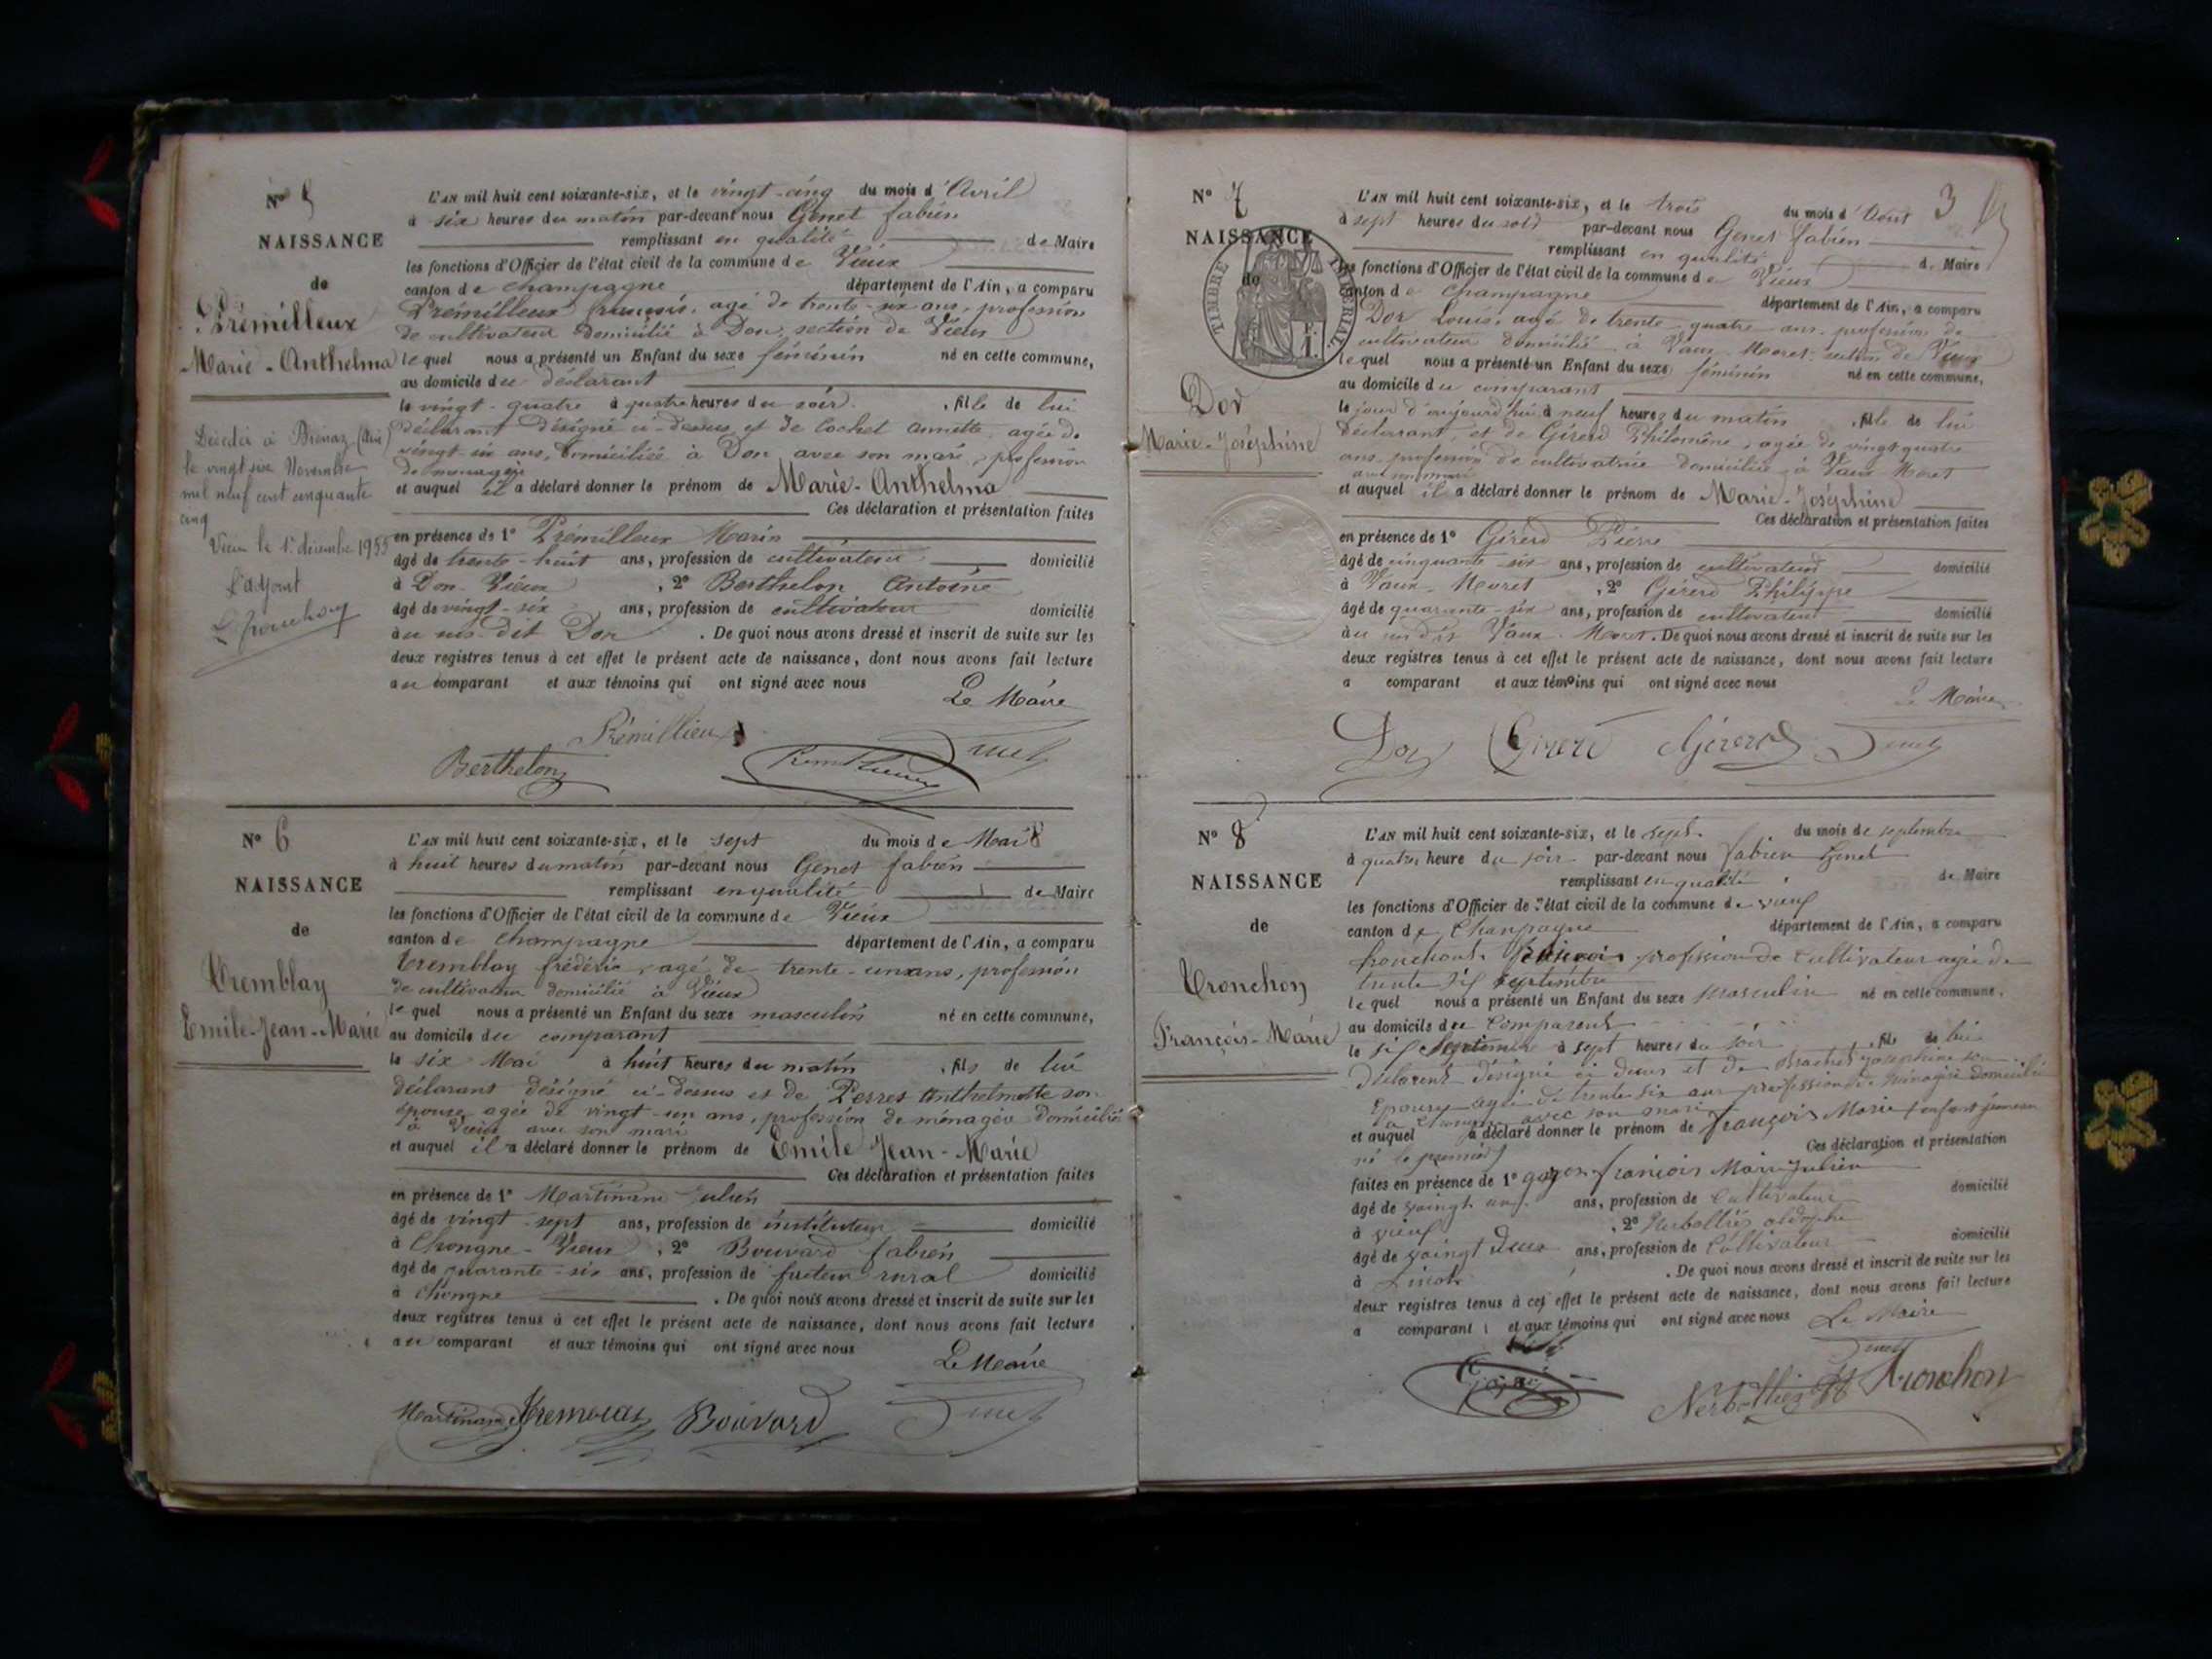 N° 5
NAISSANCE
de
Prémilleux
Marie-Anthelma
Décédée à Brénaz (Ain)
le vingt six Novembre
mil neuf cent cinquante
cinq
Vieu le 1er décembre 1955
L'adjoint
L'AN mil huit cent soixante-six, et le vingt-cinq du mois d'Avril
à six heures du matin par-devant nous Genet fabien
remplissant en qualité de Maire
les fonctions d'Officier de l'état civil de la commune de Vieux
canton de Champagne département de l'Ain, a comparu
Prémilleux françois, agé de trente-six ans, profession
de cultivateur domicilié à Don, section de Vieux
lequel nous a présenté un Enfant du sexe féminin né en cette commune,
au domicile du déclarant
le vingt-quatre à quatre heures du soir, fille de lui
déclarant désigné ci-dessus et de Cochet annette, agée de
vingt six ans, domiciliée à Don avec son mari, profession
de ménagère
et auquel il a déclaré donner le prénom de Marie-Anthelma
Ces déclaration et présentation faites
en présence de 1° Prémilleux Marin
âgé de trente-huit ans, profession de cultivateur domicilié
à Don-Vieux, 2° Berthelon Antoine
âgé de vingt-six ans, profession de cultivateur domicilié
au sus-dit Don. De quoi nous avons dressé et inscrit de suite sur les
deux registres tenus à cet effet le présent acte de naissance, dont nous avons fait lecture
au comparant et aux témoins qui ont signé avec nous
Le Maire
Prémillieux
Berthelon Genet
N° 6
NAISSANCE
de
Tremblay
Emile-Jean-Marie
L'AN mil huit cent soixante-six, et le sept du mois de Mai
à huit heures du matin par-devant nous Genet fabien
remplissant en qualité de Maire
les fonctions d'Officier de l'état civil de la commune de Vieux
canton de Champagne département de l'Ain, a comparu
Tremblay frédéric, agé de trente-un ans, profession
de cultivateur domicilié à Vieux
lequel nous a présenté un Enfant du sexe masculin né en cette commune,
au domicile du comparant
le six Mai à huit heures du matin, fils de lui
déclarant désigné ci-dessus et de Perret Anthelmette son
épouse, agée de vingt-un ans, profession de ménagère domiciliée
à Vieux avec son mari
et auquel il a déclaré donner le prénom de Emile Jean-Marie
Ces déclaration et présentation faites
en présence de 1° Martinand Julien
âgé de vingt-sept ans, profession de instituteur domicilié
à Chongne-Vieux, 2° Bouvard fabien
âgé de quarante-six ans, profession de facteur rural domicilié
à Chongne. De quoi nous avons dressé et inscrit de suite sur les
deux registres tenus à cet effet le présent acte de naissance, dont nous avons fait lecture
au comparant et aux témoins qui ont signé avec nous
Le Maire
Martinand Bouvard Genet
3
N° 7
NAISSANCE
de
TIMBRE IMPÉRIAL
Dor
Marie-Joséphine
L'AN mil huit cent soixante-six, et le trois du mois d'Aout
à sept heures du soir par-devant nous Genet fabien
remplissant en qualité de Maire
les fonctions d'Officier de l'état civil de la commune de Vieux
canton de Champagne département de l'Ain, a comparu
Dor Louis, agé de trente-quatre ans, profession de
cultivateur domicilié à Vaux-Moret section de Vieux
lequel nous a présenté un Enfant du sexe féminin né en cette commune,
au domicile du comparant
le jour d'aujourd'hui à neuf heures du matin, fille de lui
déclarant, et de Gérerd Philomène, agée de vingt quatre
ans, profession de cultivatrice domiciliée à Vaux Moret
avec son mari
et auquel il a déclaré donner le prénom de Marie-Joséphine
Ces déclaration et présentation faites
en présence de 1° Gérerd Pierre
âgé de cinquante-six ans, profession de cultivateur domicilié
à Vaux-Moret, 2° Gérerd Philippe
âgé de quarante-six ans, profession de cultivateur domicilié
au susdit Vaux-Moret. De quoi nous avons dressé et inscrit de suite sur les
deux registres tenus à cet effet le présent acte de naissance, dont nous avons fait lecture
a comparant et aux témoins qui ont signé avec nous
Le Maire
Dor Gérerd Gérerd Genet
N° 8
NAISSANCE
de
Tronchon
François-Marie
L'AN mil huit cent soixante-six, et le sept du mois de septembre
à quatre heure du soir par-devant nous fabien Genet
remplissant en qualité de Maire
les fonctions d'Officier de l'état civil de la commune de vieux
canton de Champagne département de l'Ain, a comparu
profession de cultivateur agée de
trente six septembre
lequel nous a présenté un Enfant du sexe masculin né en cette commune,
au domicile du Comparent
le six septembre à sept heures du soir, fils de lui
Déclarent désigné ci desus et de Brachet josephine son
Epouse agée de trente six ans profession de ménagère domiciliée
a avec son mari
et auquel a déclaré donner le prénom de françois Marie
né le premier
Ces déclaration et présentation
faites en présence de 1° françois Marie Julien
âgé de vaingt ans, profession de Cultivateur domicilié
à vieux, 2° Nerbollier
âgé de vaingt deux ans, profession de Cultivateur domicilié
à. De quoi nous avons dressé et inscrit de suite sur les
deux registres tenus à cet effet le présent acte de naissance, dont nous avons fait lecture
a comparant et aux témoins qui ont signé avec nous
Le Maire
Genet
Nerbollier Tronchon